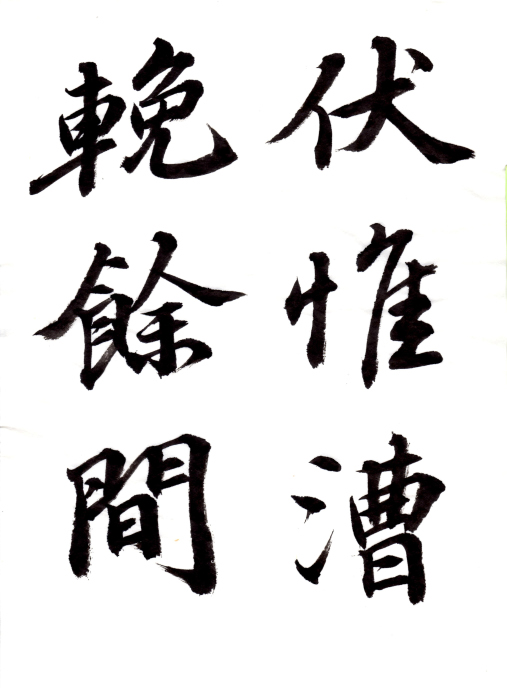 伏惟漕
輓餘間